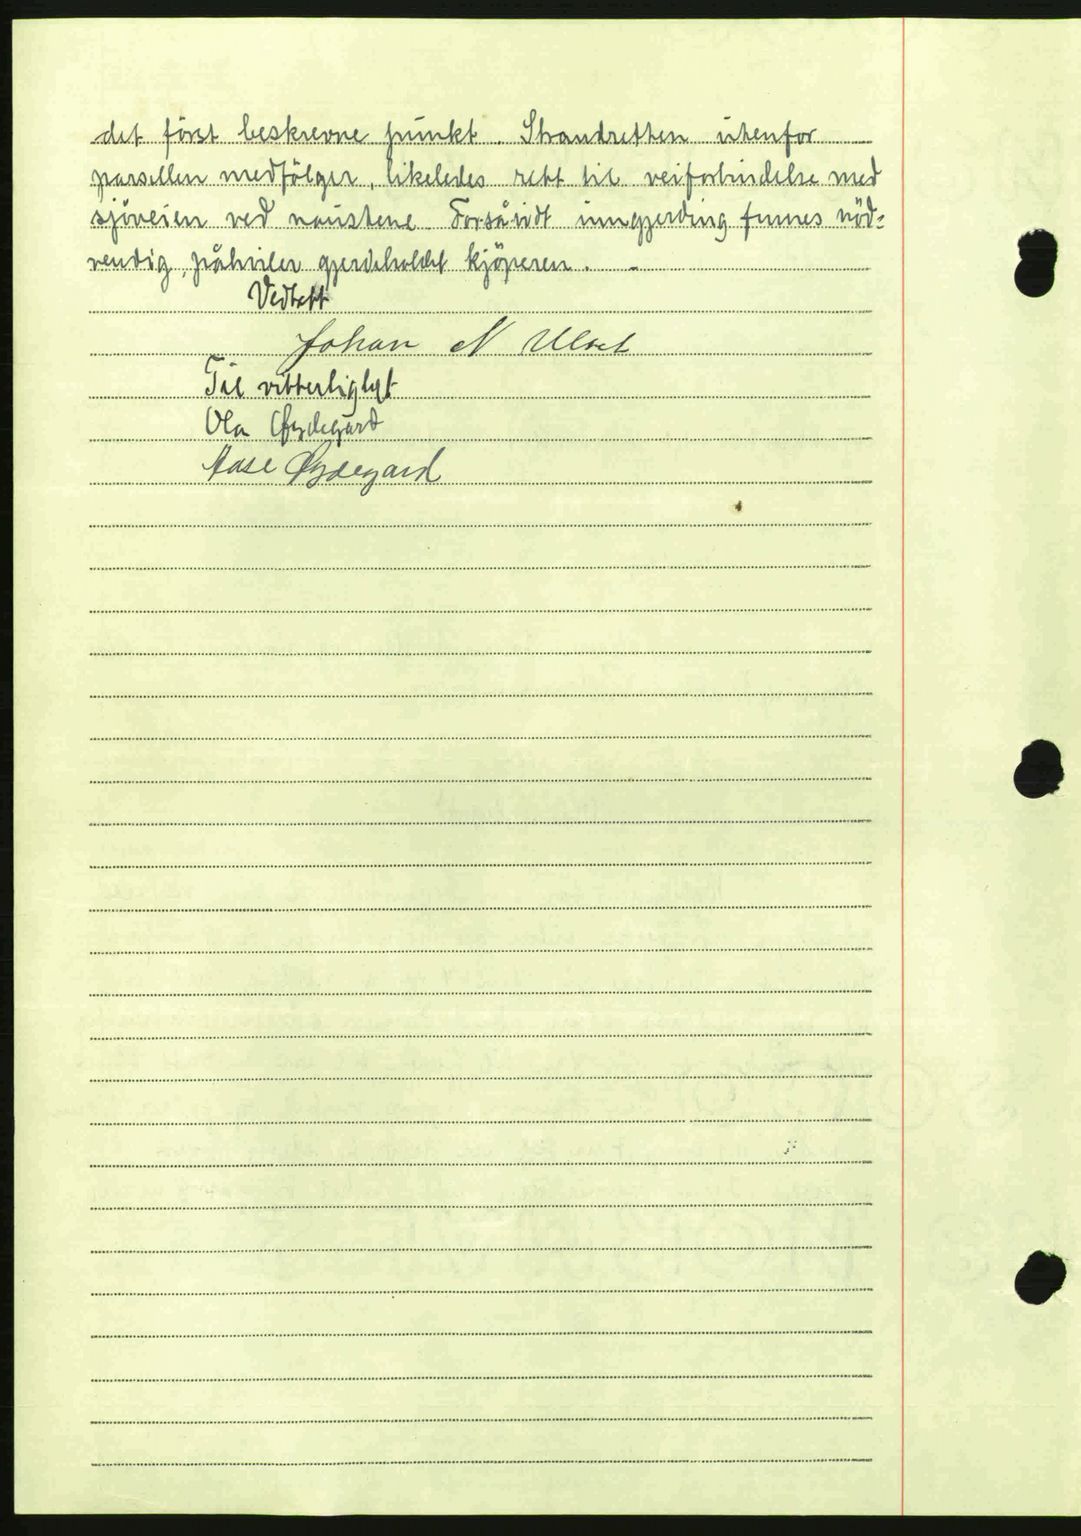 det först beskrevne punkt. Strandretten utenfor
parsellen medfölger, likeledes rett til veiforbindelse med
sjöveien ved naustene. Forsåvidt inngjerding finnes nöd-
vendig, påhviler gjerdeholdet kjöperen. -
Vedtatt
Johan N Ulset
Til vitterlighet
Ola Øydegård
Aase Øydegard